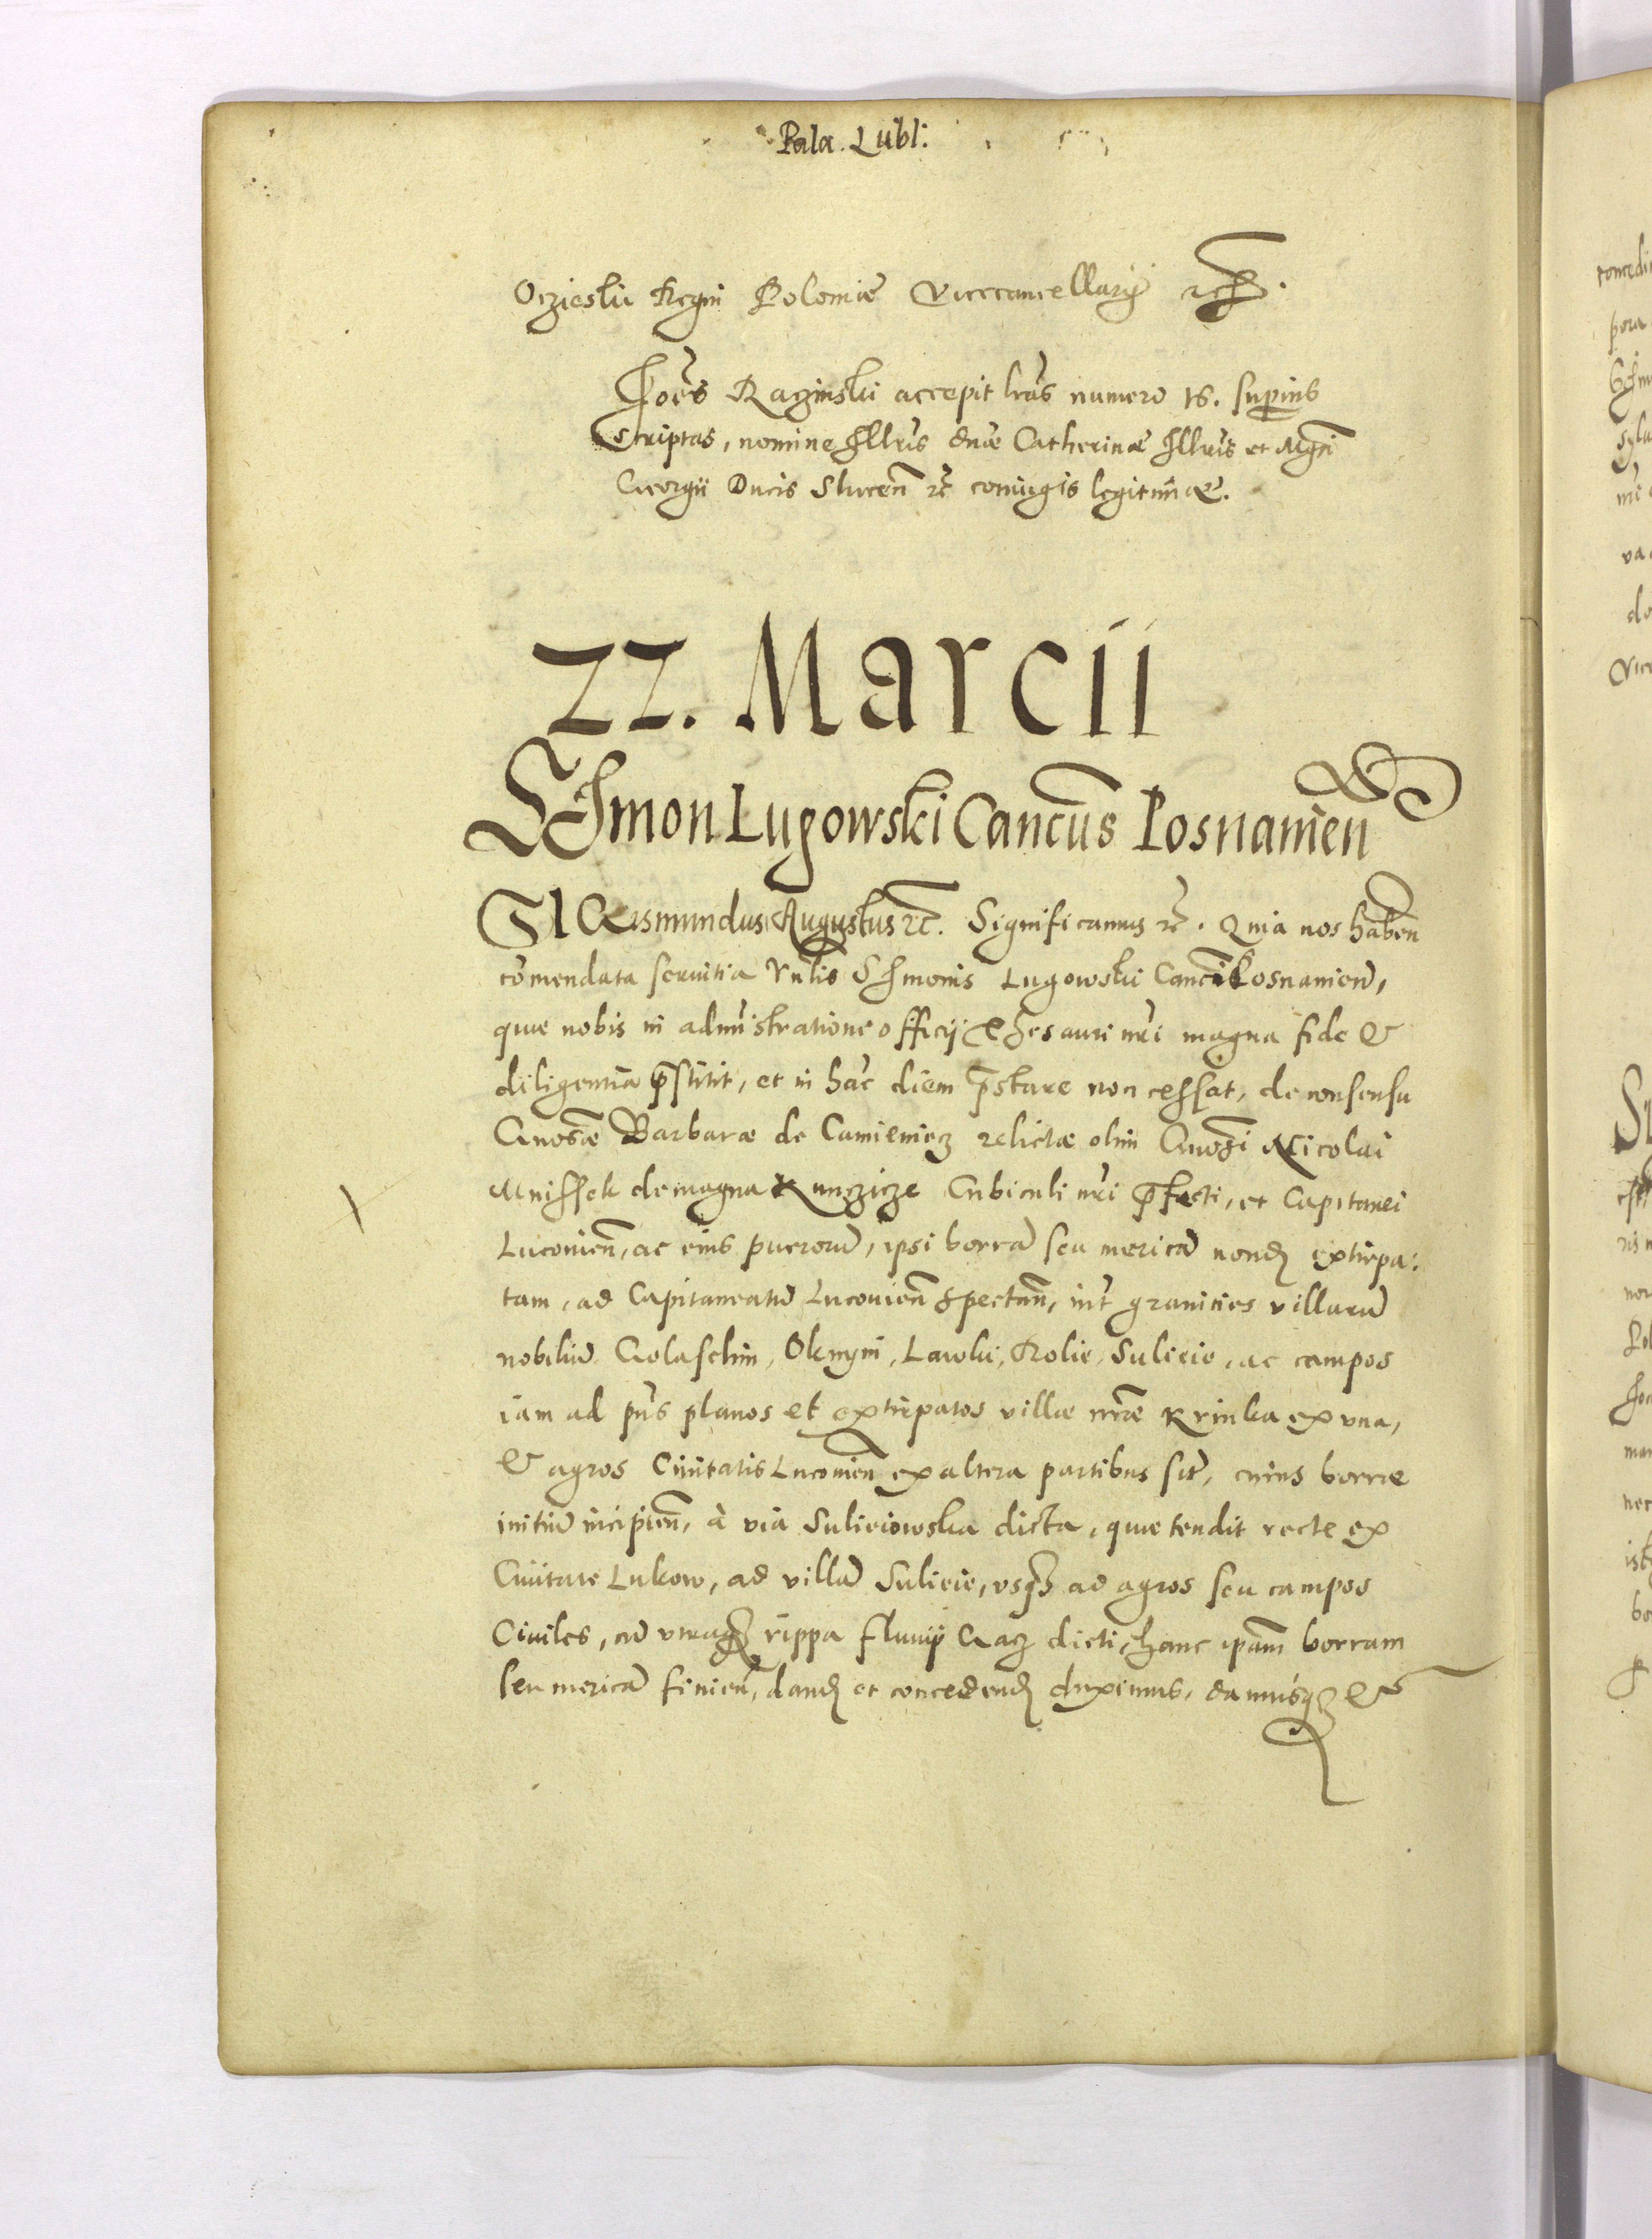 Pala. Lubl:
Oczieski Regni Poloniæ Vicecancellarij etc.
Joēs Raczinski accepit lrās numero 16. superius
scriptas, nomine Illrīs dnæ Catherinæ Illrīs et Mgci
Georgii Ducis Slucen̄ etc coniugis legitimæ.
22. Marcii
Schmon Lugowski Cancūs Posnanien
SIGismundus Augustus etc. Significamus etc. Quia nos haben̄
com̄endata seruitia Vnlis Schmonis Lugowski Canci Posnanien̄,
quæ nobis in admīstratione officij Thesauri nrī magna fide &
diligentia p̄stitit, et in hāc diem p̄stare non cessat, de consensu
Gnosæ Barbaræ de Camieniecz relictæ olim Gnosi Nicolai
Mnissek de magna Kunczicze Cubiculi nrī p̄fecti, et Capitanei
Luconien̄, ac eius puerorū, ipsi borrā seu mericā nond extirpa:
tam, ad Capitaneatū Luconien̄ spectan̄, int̄ granicies villarū
nobiliū Golaschin, Oknyni, Lawki, Rolie, Sulieie, ac campos
iam ad pn̄s planos et extirpatos villæ nrǣ Krinka ex vna,
& agros Ciuitatis Luconien̄ ex altera partibus sit̄, cuius borræ
initiū incipien̄, à via Sulieiowska dicta, quæ tendit recte ex
Ciuitate Lukow, ad villā Sulieie, vsqz ad agros seu campos
Ciuiles, cū vtraqz rippa fluuij Gacz dicti, hanc ipam borram
seu mericā finien̄, dand et concedend duximus, damusqz &